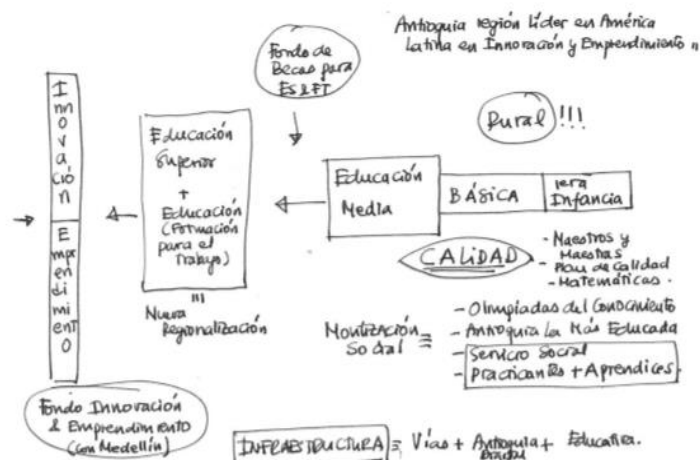 Antioquia región Líder en América
Latina en Innovación y Emprendimiento "
Fondo de
Becas para
ES & FT
Rural !!!
Innovación
Emprendimiento
Educación
Superior
+
Educación
(Formación
para el
Trabajo)
Nueva
Regionalización
Educación
Media
BÁSICA
1era
Infancia
CALIDAD
- Maestros y
Maestras
- Plan de Calidad
- Matemáticas.
Movilización
Social =
- Olimpiadas del Conocimiento
- Antioquia la Más Educada
- Servicio Social
- Practicantes + Aprendices.
Fondo Innovación
& Emprendimiento
(con Medellín)
INFRAESTRUCTURA = Vías + Antioquia + Educativa.